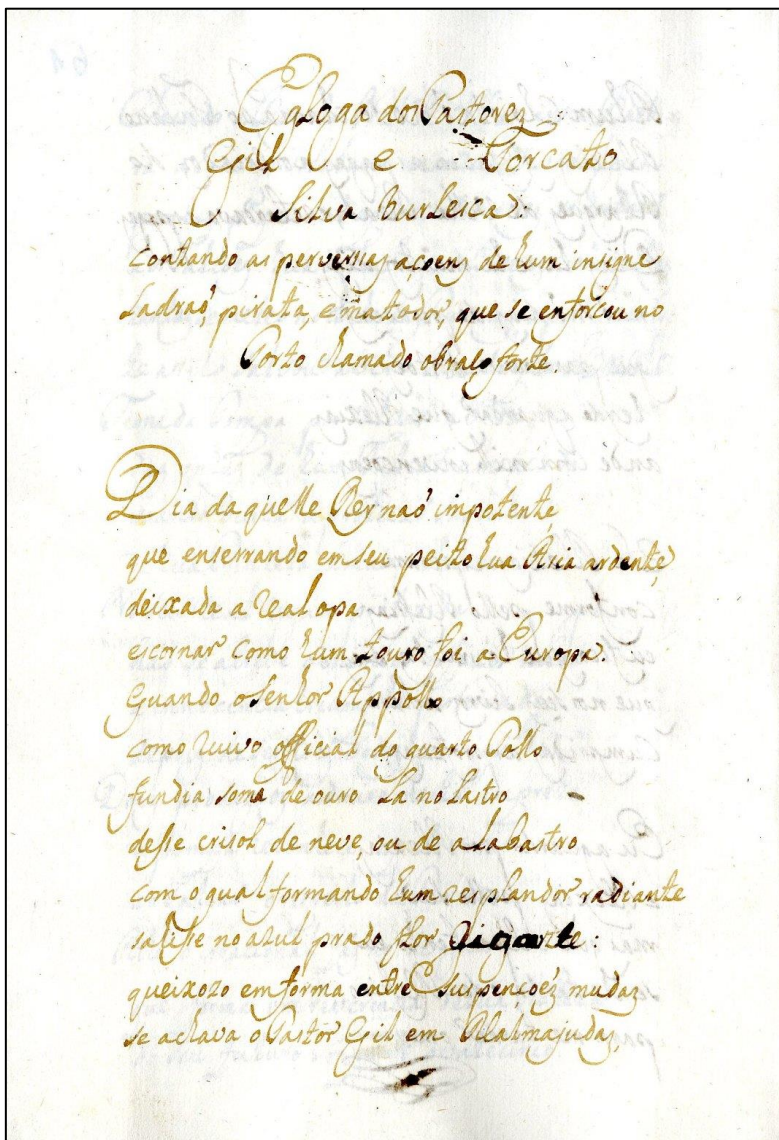 Egloga dos Pastorez
Gil e Torcato
Silva burlesca:
contando as perversas açoenz de hum insigne
Ladraõ, pirata, e matador, que se enforcou no
Porto chamado o braço forte.
Dia daquelle Rey naõ impotente,
que enserrando em seu peito hua Aria ardente,
deixada a real opa
escornar como hum touro foi a Europa.
Quando o senhor Appollo
como ruivo official do quarto Pollo
fundia soma de ouro la no Lastro
desse crisol de neve, ou de alabastro
com o qual formando hum resplandor radiante
sahisse no azul prado flor gigante:
queixozo em forma entre suspençoéz mudaz
se aclava o Pastor Gil em Realmajudaz,